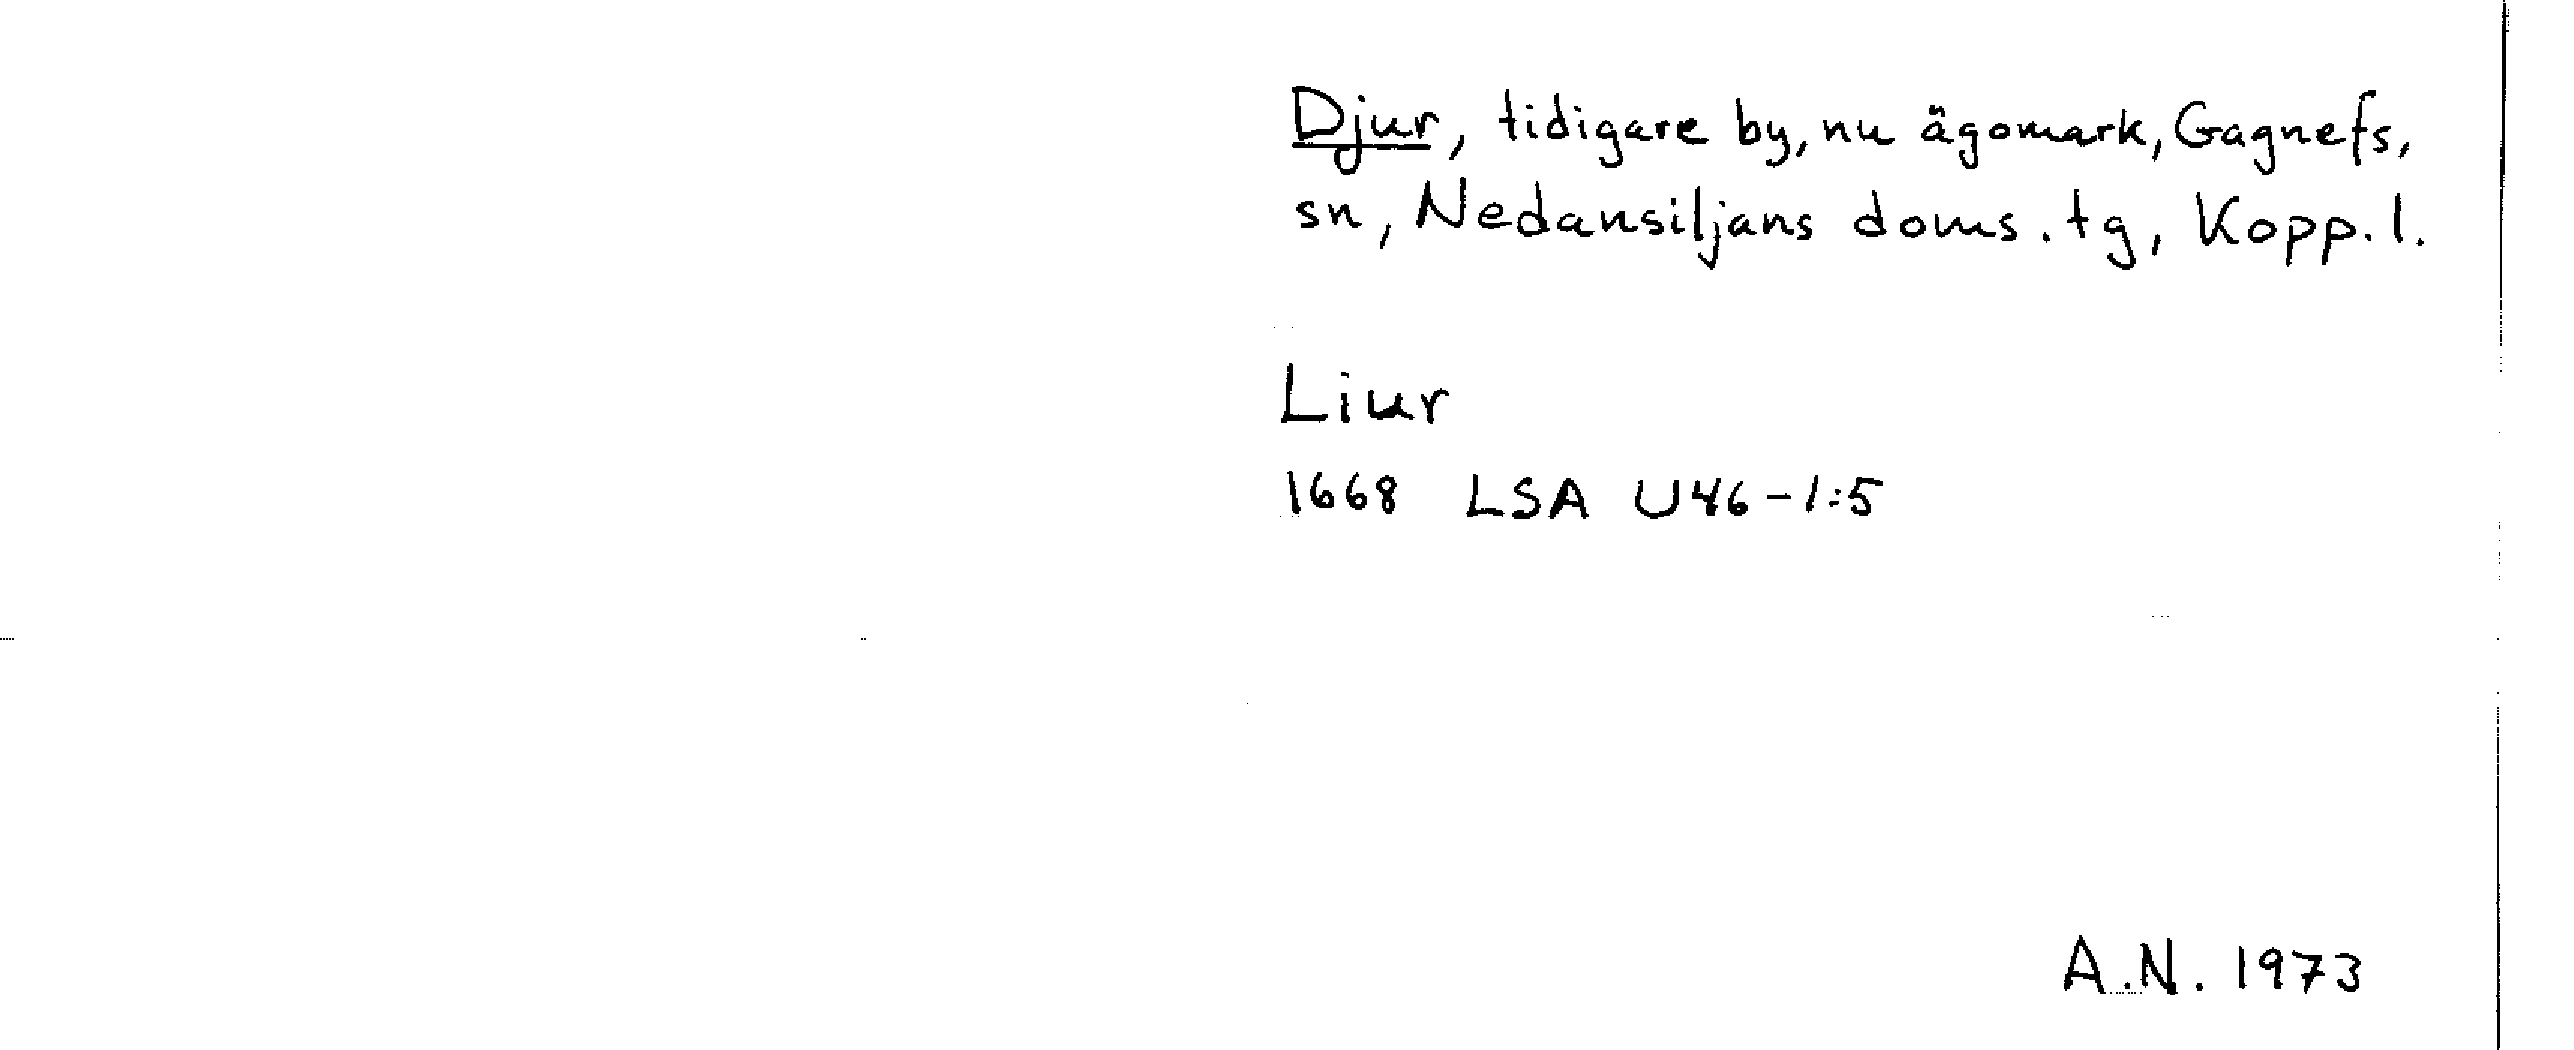 Djur, tidigare by, nu ägomark, Gagnefs,
sn, Nedansiljans doms. tg, Kopp. l.
Liur
1668 LSA U46-1:5
A.N. 1973